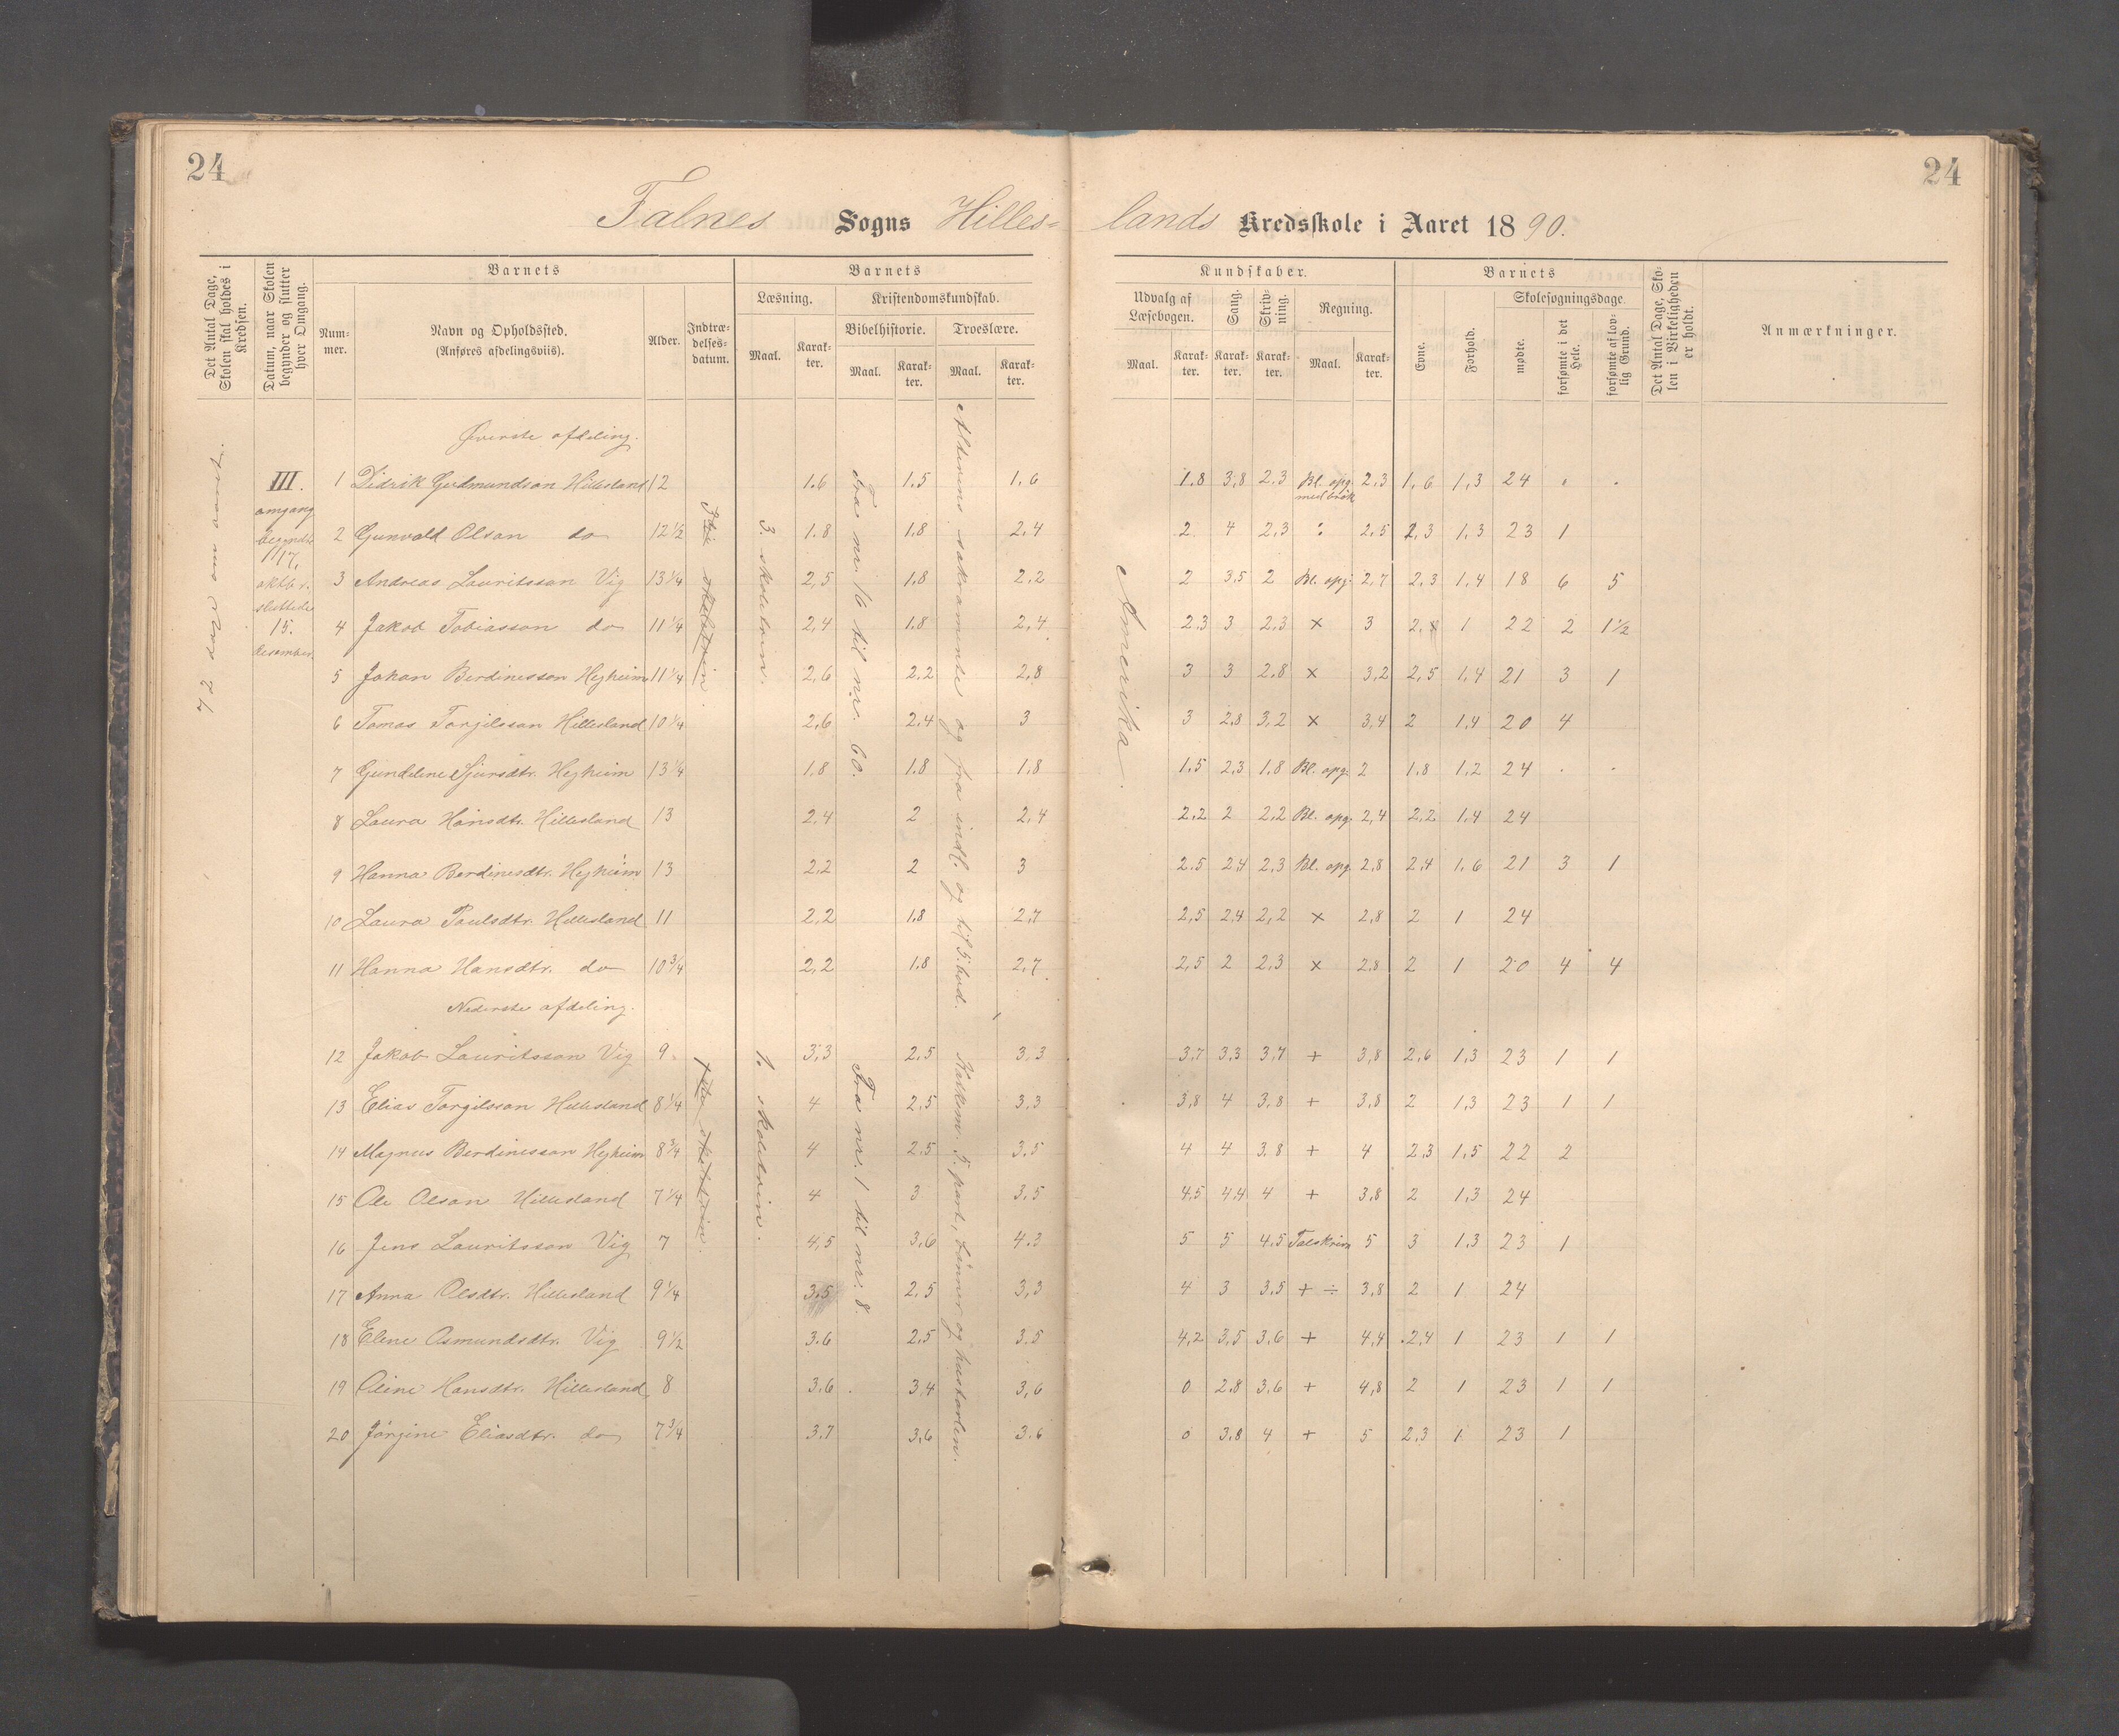 24
24
Falnes Sogns Hilles=
lands Kredsskole i Aaret 1890.
Det Antal Dage, Skolen skal holdes i Kredsen.
Datum, naar Skolen begynder og slutter hver Omgang.
Barnets
Nummer.
Navn og Opholdssted.
(Anføres afdelingsviis).
Alder.
Indtrædelsesdatum.
Barnets
Læsning.
Kristendomskundskab.
Bibelhistorie.
Troeslære.
Maal.
Karakter.
Maal.
Karakter.
Maal.
Karakter.
Kundskaber.
Udvalg af Læsebogen.
Sang.
Skrivning.
Regning.
Maal.
Karakter.
Karakter.
Karakter.
Maal.
Karakter.
Barnets
Evne.
Forhold.
Skolesøgningsdage.
mødte.
forsømte i det Hele.
forsømte af lovlig Grund.
Det Antal Dage, Skolen i Virkeligheden er holdt.
Anmærkninger.
72 dage om aaret.
III. omgang begyndte 17. oktbr. sluttede 15. desember.
3. skoletrin.
Fra nr. 16 til nr. 60.
Altereens sakramente og fra indl. og til 5. bud.
Amerika.
Øverste afdeling.
1 Didrik Gudmundson Hillesland 12 1.6 1.5 1,6 1.8 3,8 2.3 Bl. opg. med brøk 2,3 1,6 1,3 24 . .
2 Gunvald Olson do 12½ 1.8 1.8 2,4 2 4 2,3 : 2,5 2,3 1,3 23 1
3 Andreas Lauritsson Vig 13¼ 2,5 1,8 2,2 2 3,5 2 Bl. opg: 2,7 2,3 1,4 18 6 5
4 Jakob Tobiasson do 11¼ 2,4 1.8 2,4 2.3 3 2.3 × 3 1 22 2 1½
5 Johan Berdinesson Hejheim 11¼ 2,6 2,2 2,8 3 3 2.8 × 3,2 2,5 1,4 21 3 1
6 Tomas Torgilsson Hillesland 10¼ 2,6 2.4 3 3 2,8 3,2 × 3,4 2 1,4 20 4
7 Gundeline Sjursdtr. Hejheim 13¼ 1,8 1.8 1,8 1.5 2,3 1.8 Bl. opg: 2 1.8 1,2 24 . .
8 Laura Hansdtr. Hillesland 13 2,4 2 2,4 2.2 2 2,2 Bl. opg. 2,4 2,2 1,4 24
9 Hanna Berdinesdtr. Hejheim 13 2,2 2 3 2.5 2,4 2,3 Bl. opg. 2,8 2,4 1,6 21 3 1
10 Laura Paulsdtr. Hillesland 11 2,2 1,8 2,7 2,5 2,4 2,2 × 2,8 2 1 24
11 Hanna Hansdtr. do 10¾ 2,2 1.8 2,7 2,5 2 2,3 × 2.8 2 1 20 4 4
Nederste afdeling.
1. skoletrin.
Fra nr. 1 til nr. 8.
5. part, bønner og hustavlen.
12 Jakob Lauritsson Vig 9 3,3 2.5 3,3 3,7 3,3 3,7 + 3,8 2,6 1,3 23 1 1
13 Elias Torgilsson Hillesland 8¼ 4 2,5 3,3 3,8 4 3,8 + 3,8 2 1,3 23 1 1
14 Magnus Berdinesson Hejheim 8¾ 4 2,5 3,5 4 4 3.8 + 4 2,3 1,5 22 2
15 Ole Olson Hillesland 7¼ 4 3 3,5 4,5 4,4 4 + 3,8 2 1,3 24
16 Jens Lauritsson Vig 7 4,5 3,6 4,3 5 5 4.5 Talskriv. 5 3 1,3 23 1
17 Anna Olsdtr. Hillesland 9¼ 3.5 2,5 3,3 4 3 3,5 + ÷ 3,8 2 1 24
18 Elene Osmundsdtr. Vig 9½ 3.6 2,5 3.5 4,2 3,5 3,6 + 4,4 2,4 1 23 1 1
19 Oline Hansdtr. Hillesland 8 3,6 3,4 3,6 0 2.8 3,6 + 4,8 2 1 23 1 1
20 Jørgine Eliasdtr. do 7¾ 3,7 3,6 3.6 0 3,8 4 + 5 2,3 1 23 1